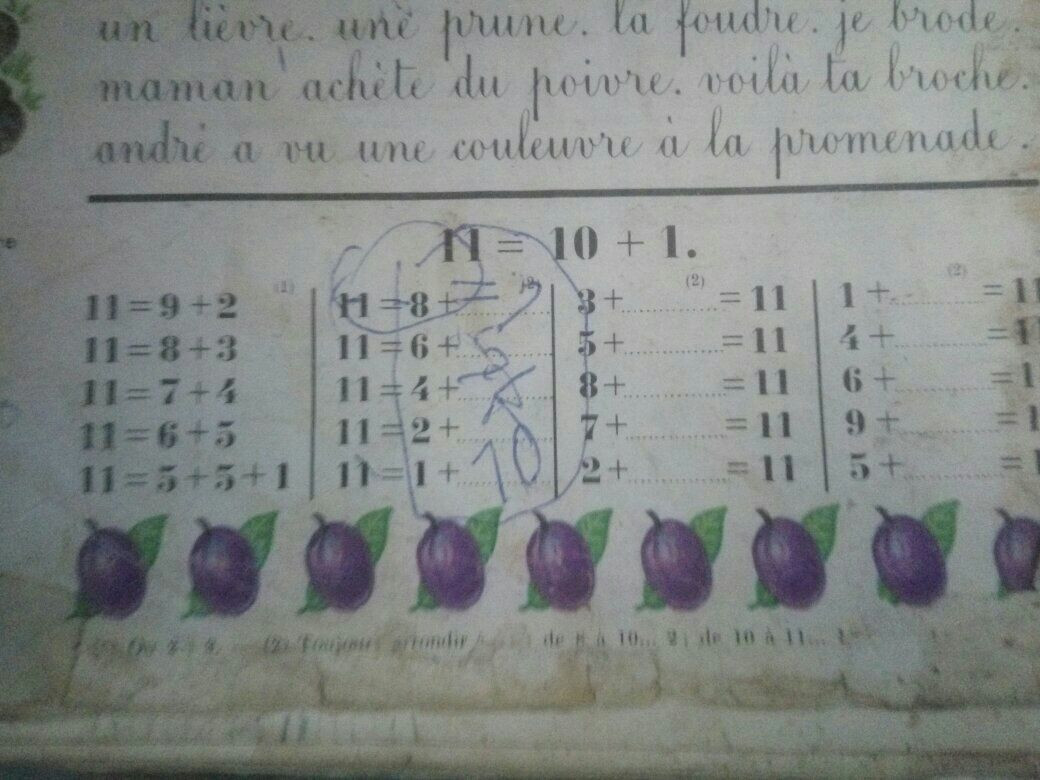 un lièvre. une prune. la foudre. je brode.
maman achète du poivre. voilà ta broche.
andré a vu une couleuvre à la promenade.
re
11 = 10 + 1.
(1) (2) (2) (2)
11 = 9 + 2 11 = 8 + ........ 3 + ........ = 11 1 + ........ = 11
11 = 8 + 3 11 = 6 + ........ 5 + ........ = 11 4 + ........ = 11
11 = 7 + 4 11 = 4 + ........ 8 + ........ = 11 6 + ........ = 1
11 = 6 + 5 11 = 2 + ........ 7 + ........ = 11 9 + ........ = 1
11 = 5 + 5 + 1 11 = 1 + ........ 2 + ........ = 11 5 + ........ = 1
10
(2) Toujours arrondir de 8 à 10... 2; de 10 à 11...